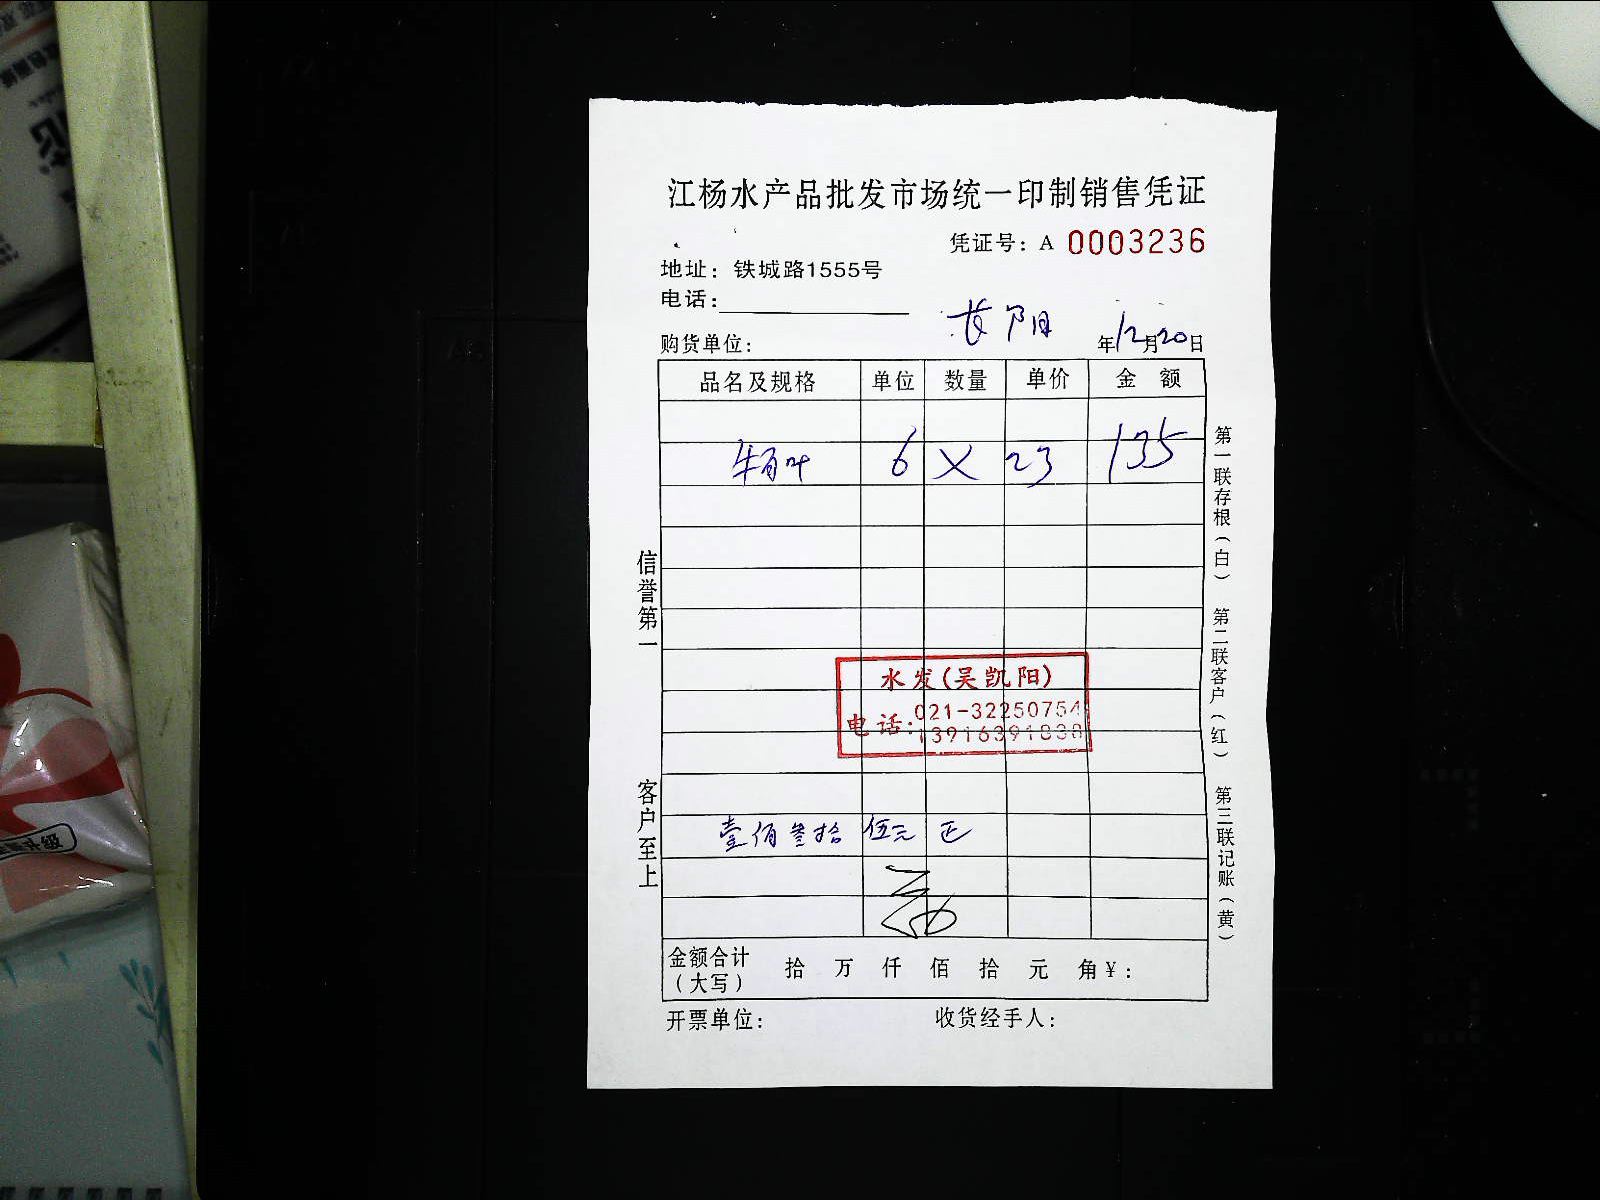 江杨水产品批发市场统一印制销售凭证
凭证号：A 0003236
地址：铁城路1555号
电话：
长阳
购货单位： 年12月20日
品名及规格 单位 数量 单价 金额
牛百叶 6 X 23 135
水发(吴凯阳)
电话：021-32250754
壹佰叁拾伍元正
金额合计（大写） 拾 万 仟 佰 拾 元 角¥：
开票单位： 收货经手人：
信誉第一
客户至上
第一联存根（白）
第二联客户（红）
第三联记账（黄）